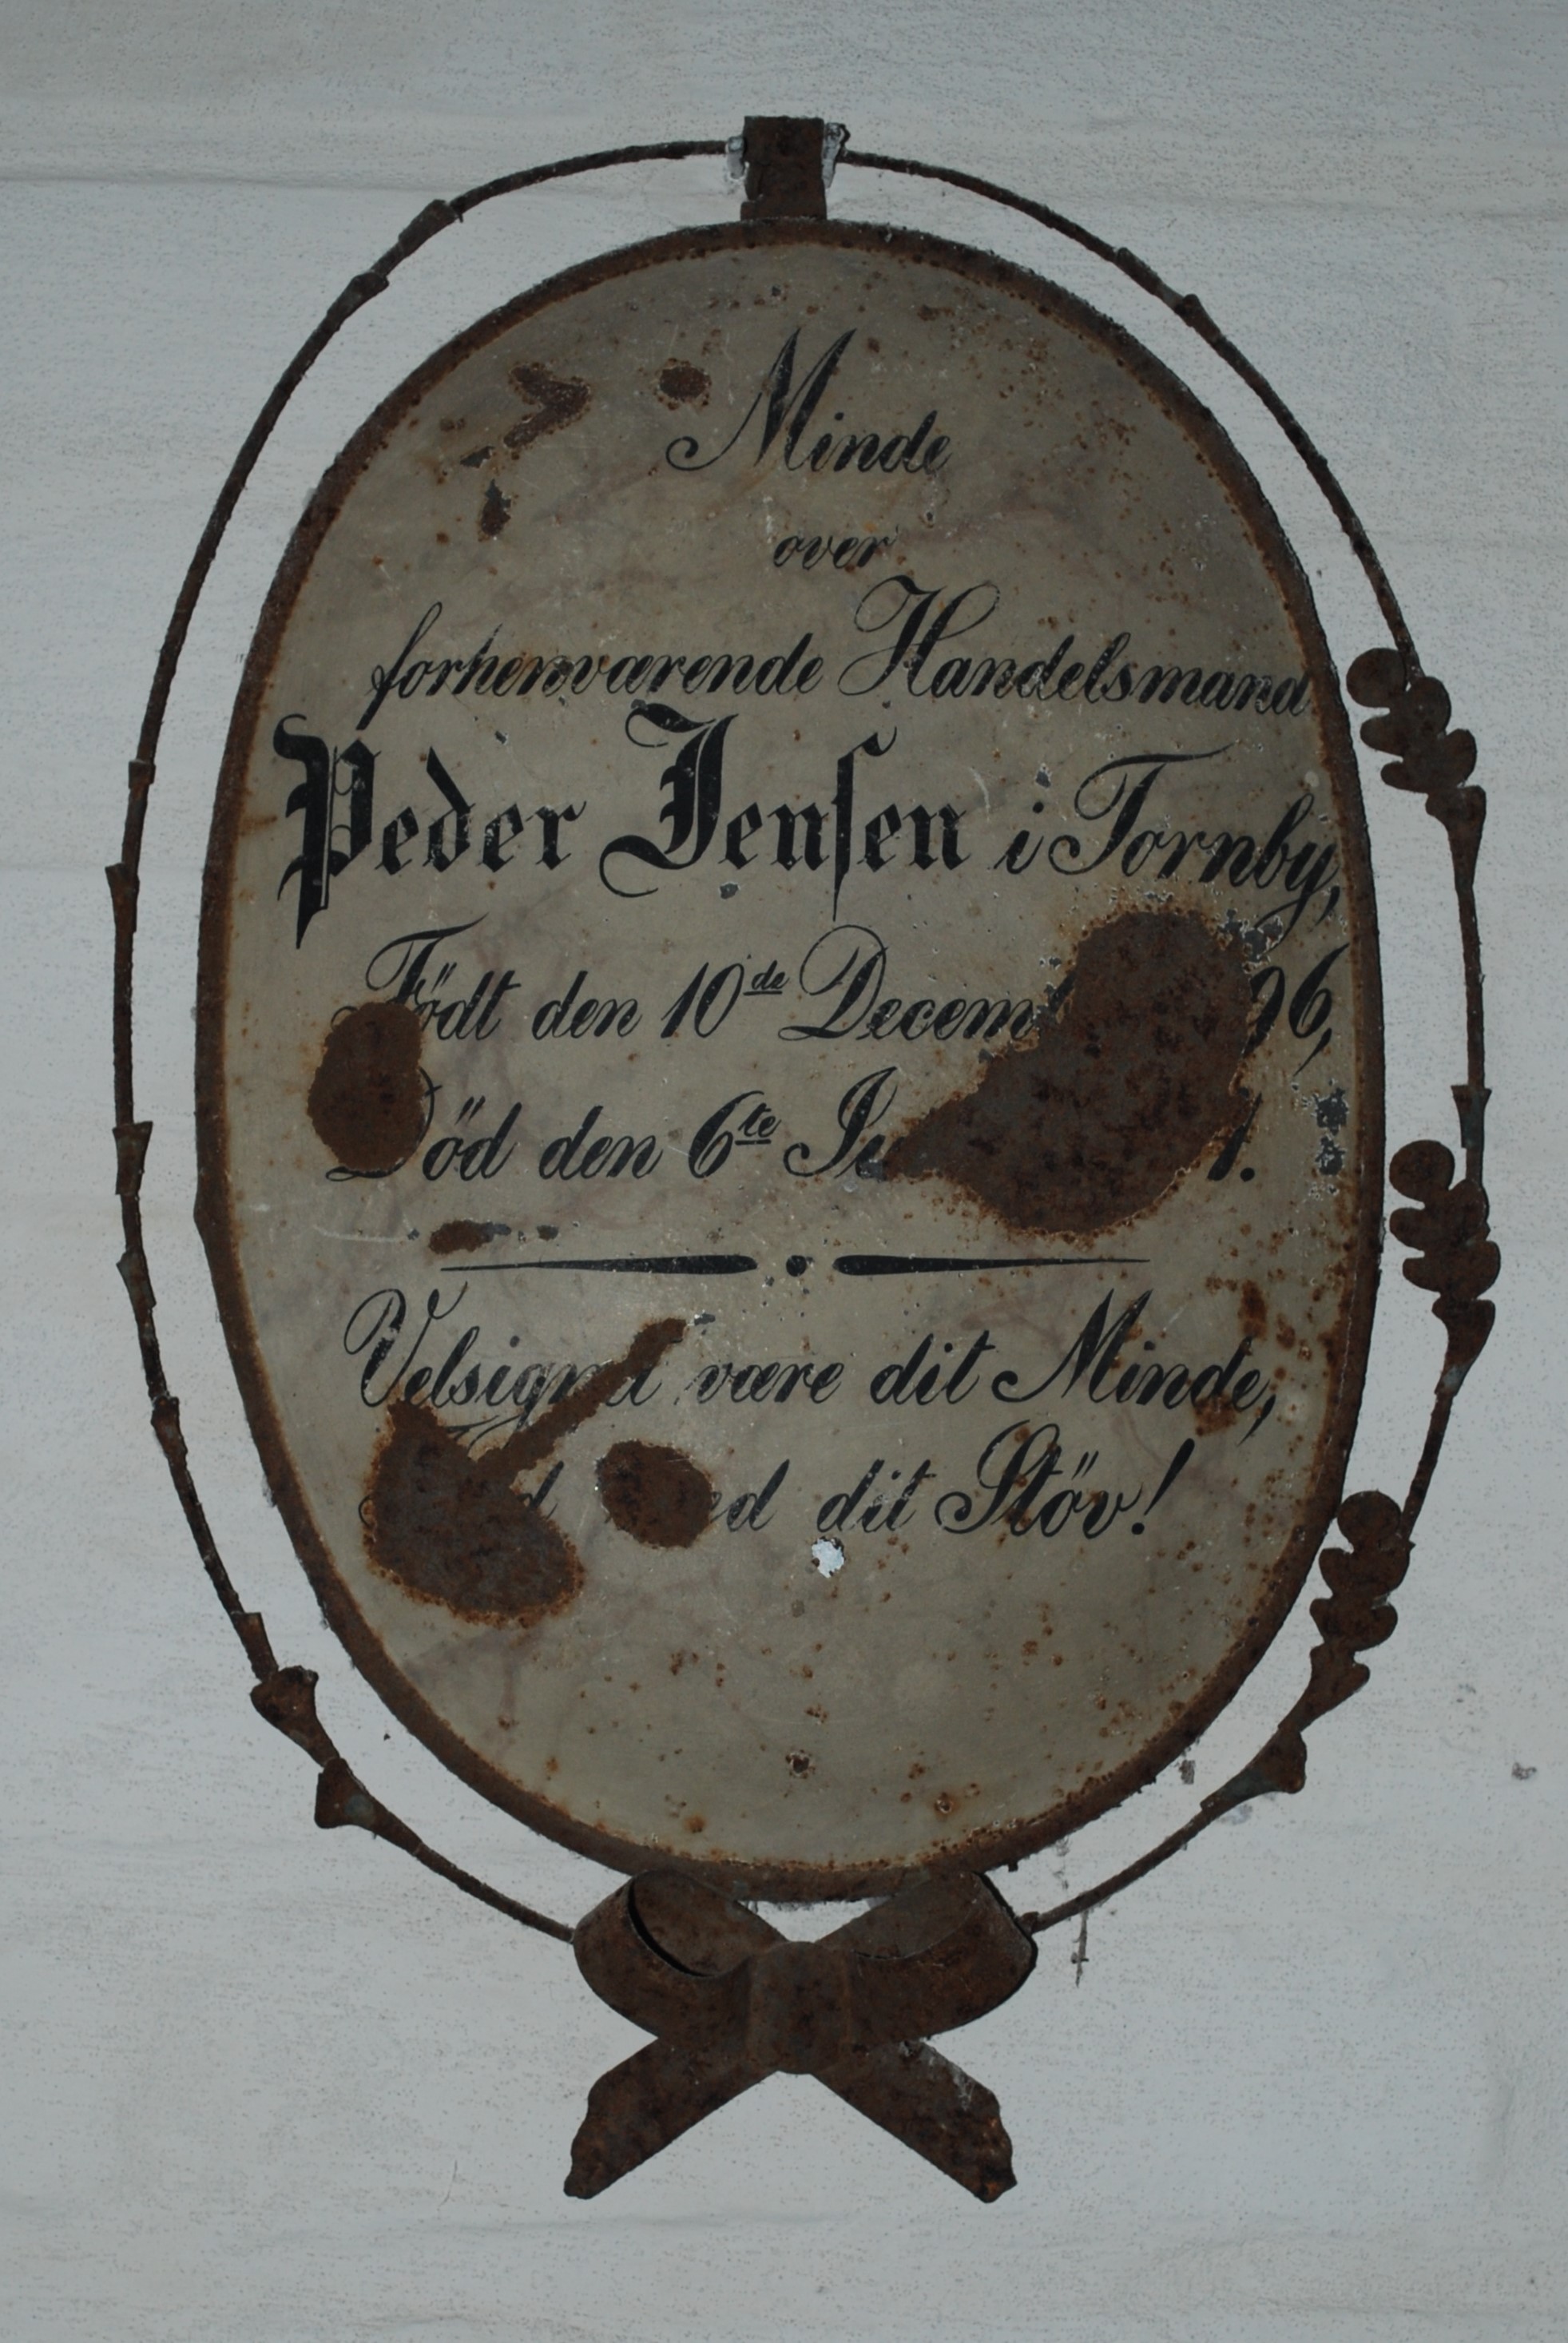 Minde
over
forhenværende Handelsmand
Peder Jenſen i Tornby,
Födt den 10de 96,
Död den 6te 1.
Velsignet være dit Minde,
dit Stöv!